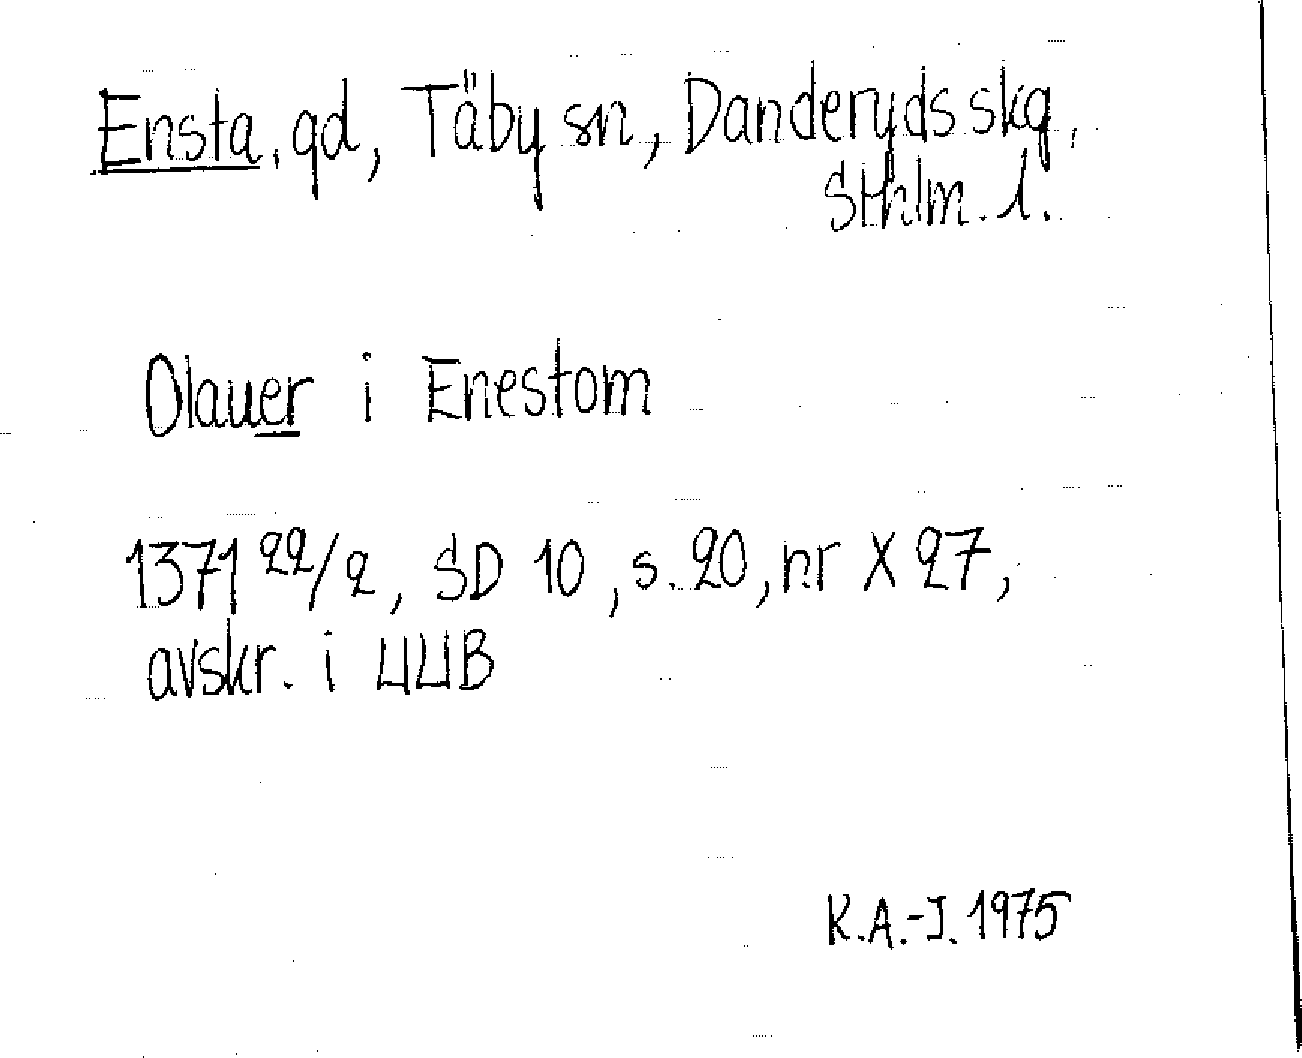 Ensta, gd, Täby sn, Danderyds skg,
Sthlm. l.
Olauer i Enestom
1371 22/2, SD 10, s. 20, nr X 27,
avskr. i UUB
K.A.-I. 1975